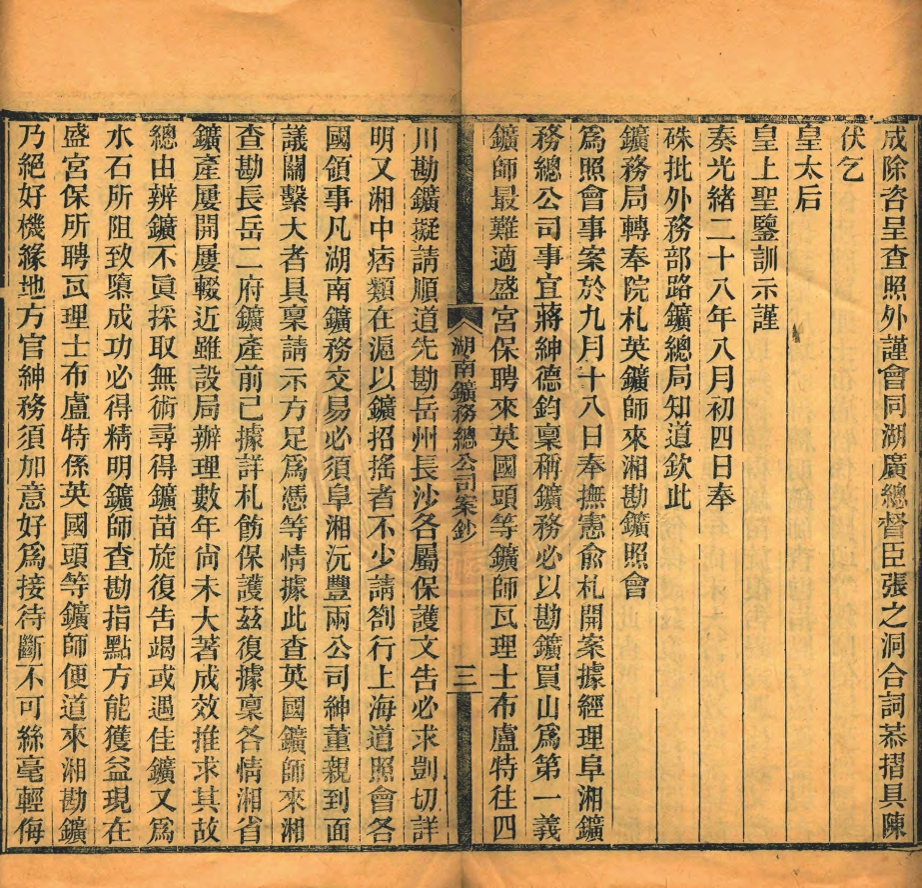 成除咨呈查照外謹會同湖廣總督臣張之洞合詞恭摺具陳
伏乞
皇太后
皇上聖鑒訓示謹
奏光緒二十八年八月初四日奉
硃批外務部路鑛總局知道欽此
鑛務局轉奉院札英鑛師來湘勘鑛照會
爲照會事案於九月十八日奉撫憲俞札開案據經理阜湘鑛
務總公司事宜蔣紳德鈞稟稱鑛務必以勘鑛買山爲第一義
鑛師最難適盛宮保聘來英國頭等鑛師瓦理士布盧特往四
湖南鑛務總公司案鈔
三
川勘鑛擬請順道先勘岳州長沙各屬保護文告必求剴切詳
明又湘中痞類在滬以鑛招搖者不少請劄行上海道照會各
國領事凡湖南鑛務交易必須阜湘沅豐兩公司紳董親到面
議關繫大者具稟請示方足爲憑等情據此查英國鑛師來湘
查勘長岳二府鑛產前已據詳札飭保護茲復據稟各情湘省
鑛產屢開屢輟近雖設局辦理數年尙未大著成效推求其故
總由辨鑛不眞採取無術尋得鑛苗旋復吿竭或遇佳鑛又爲
水石所阻致隳成功必得精明鑛師查勘指點方能獲益現在
盛宮保所聘瓦理士布盧特係英國頭等鑛師便道來湘勘鑛
乃絕好機緣地方官紳務須加意好爲接待斷不可絲毫輕侮